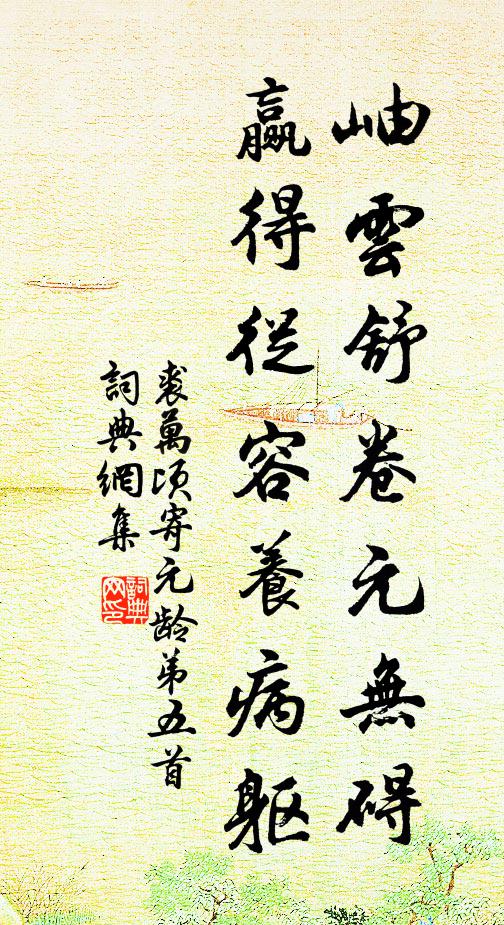 岫雲舒卷元無碍
贏得從容養病軀
裘萬頃寄元龄第五首
詞典網集
詞典网印